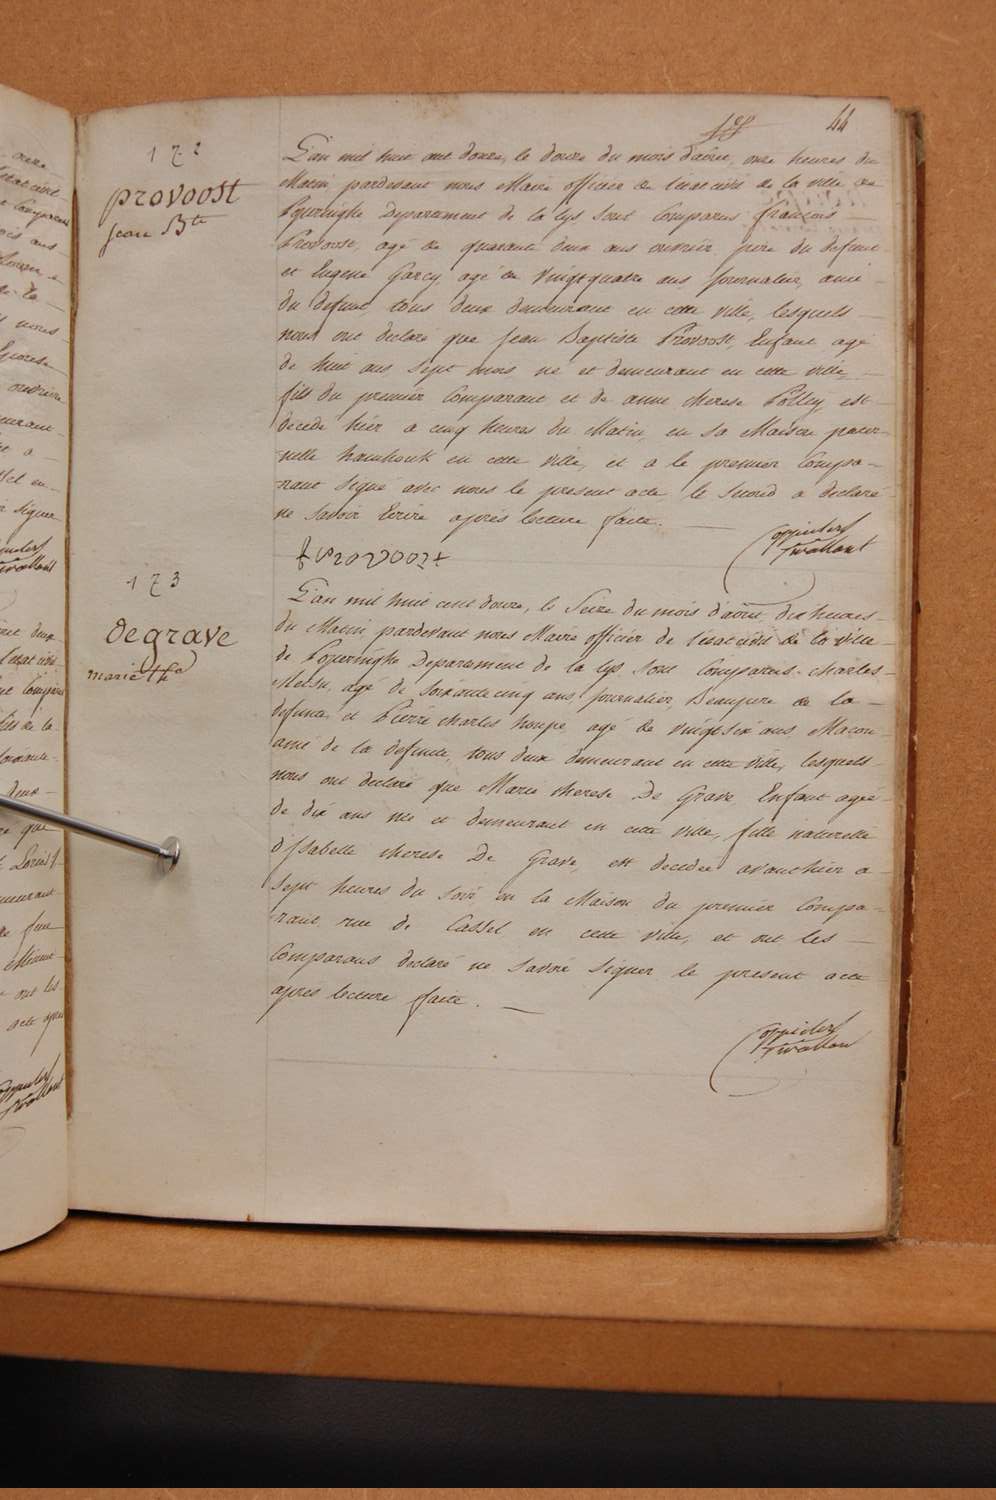 44
172
Provoost
jean Bte
L'an mil huit cent douze, le douze du mois d'aôut, onze heures du
Matin, pardevant nous Maire officier de l'etat civil de la ville de
Poperinghe Departement de la Lys sont Comparus françois
Provoost, agé de quarante deux ans ouvrier pere du defunt
et Eugene Garcy, agé de vingt quatre ans journalier, ami
du defunt, tous deux demeurant en cette ville, lesquels
nous ont declaré que Jean Baptiste Provoost, Enfant agé
de huit ans sept mois né et demeurant en cette ville
fils du premier Comparant et de anne therese Polley est
decedé hier a cinq heures du Matin, en sa Maison pater
nelle hamhouk en cette ville, et a le premier Compa-
rant signé avec nous le present acte, le second a declaré
ne savoir Ecrire après lecture faite.
f Provoost
173
degrave
marie the
L'an mil huit cent douze, le Seize du mois d'aôut, dix heures
du Matin pardevant nous Maire officier de l'etat civil de la ville
de Poperinghe Departement de la Lys sont Comparus charles
agé de soixante cinq ans, journalier, Beaupere de la
defunte, et Pierre charles houpe, agé de vingt six ans Macon
ami de la defunte, tous deux demeurant en cette ville, lesquels
nous ont declaré que Marie therese De Grave Enfant agée
de dix ans née et demeurant en cette ville, fille naturelle
d'jsabelle therese De Grave, est decedée avanthier a
sept heures du soir en la Maison du premier Compa-
rant, rue de Cassel en cette ville, et ont les
Comparans declaré ne savoir signer le present acte
apres lecture faite.